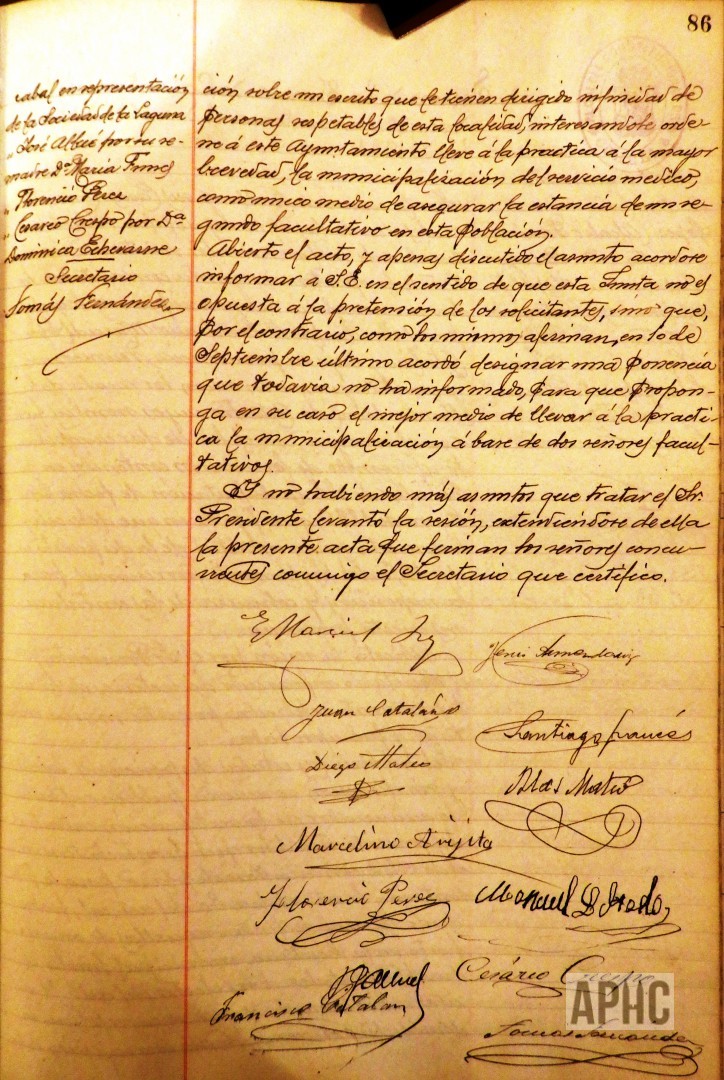 86
cabal en representación
de la Sociedad de la Laguna
" José Albué por su re-
madre Dª María Funes
" Florencio Perez
" Cesareo Crespo por Dª
Dominica Echevarne
Secretario
Tomás Fernández
ción sobre un escrito que le tienen dirigido infinidad de
personas respetables de esta localidad, interesandole orde-
ne á este Ayuntamiento lleve á la practica á la mayor
brevedad, la municipalización del servicio medico,
como unico medio de asegurar la estancia de un se-
gundo facultativo en esta Población.
Abierto el acto, y apenas discutido el asunto acordóse
informar á S.E. en el sentido de que esta Junta no es
opuesta á la pretensión de los solicitantes, sinó que,
por el contrario, como los mismos afirman, en 10 de
Septiembre último acordó designar una ponencia
que todavia no ha informado, para que propon-
ga en su caso el mejor medio de llevar á la practi-
ca la municipalización á base de dos señores facul-
tativos.
Y no habiendo más asuntos que tratar el Sr.
Presidente levantó la sesión, extendiendose de ella
la presente acta que firman los señores concu-
rrentes conmigo el Secretario que certifico.
E Marcial
Juan Catalán
Santiago Francés
Diego Mateo
Blas Mateo
Marcelino Arijita
Florencio Perez
Manuel
Cesáreo Crespo
Francisco Catalan
Tomas Fernandez
APHC